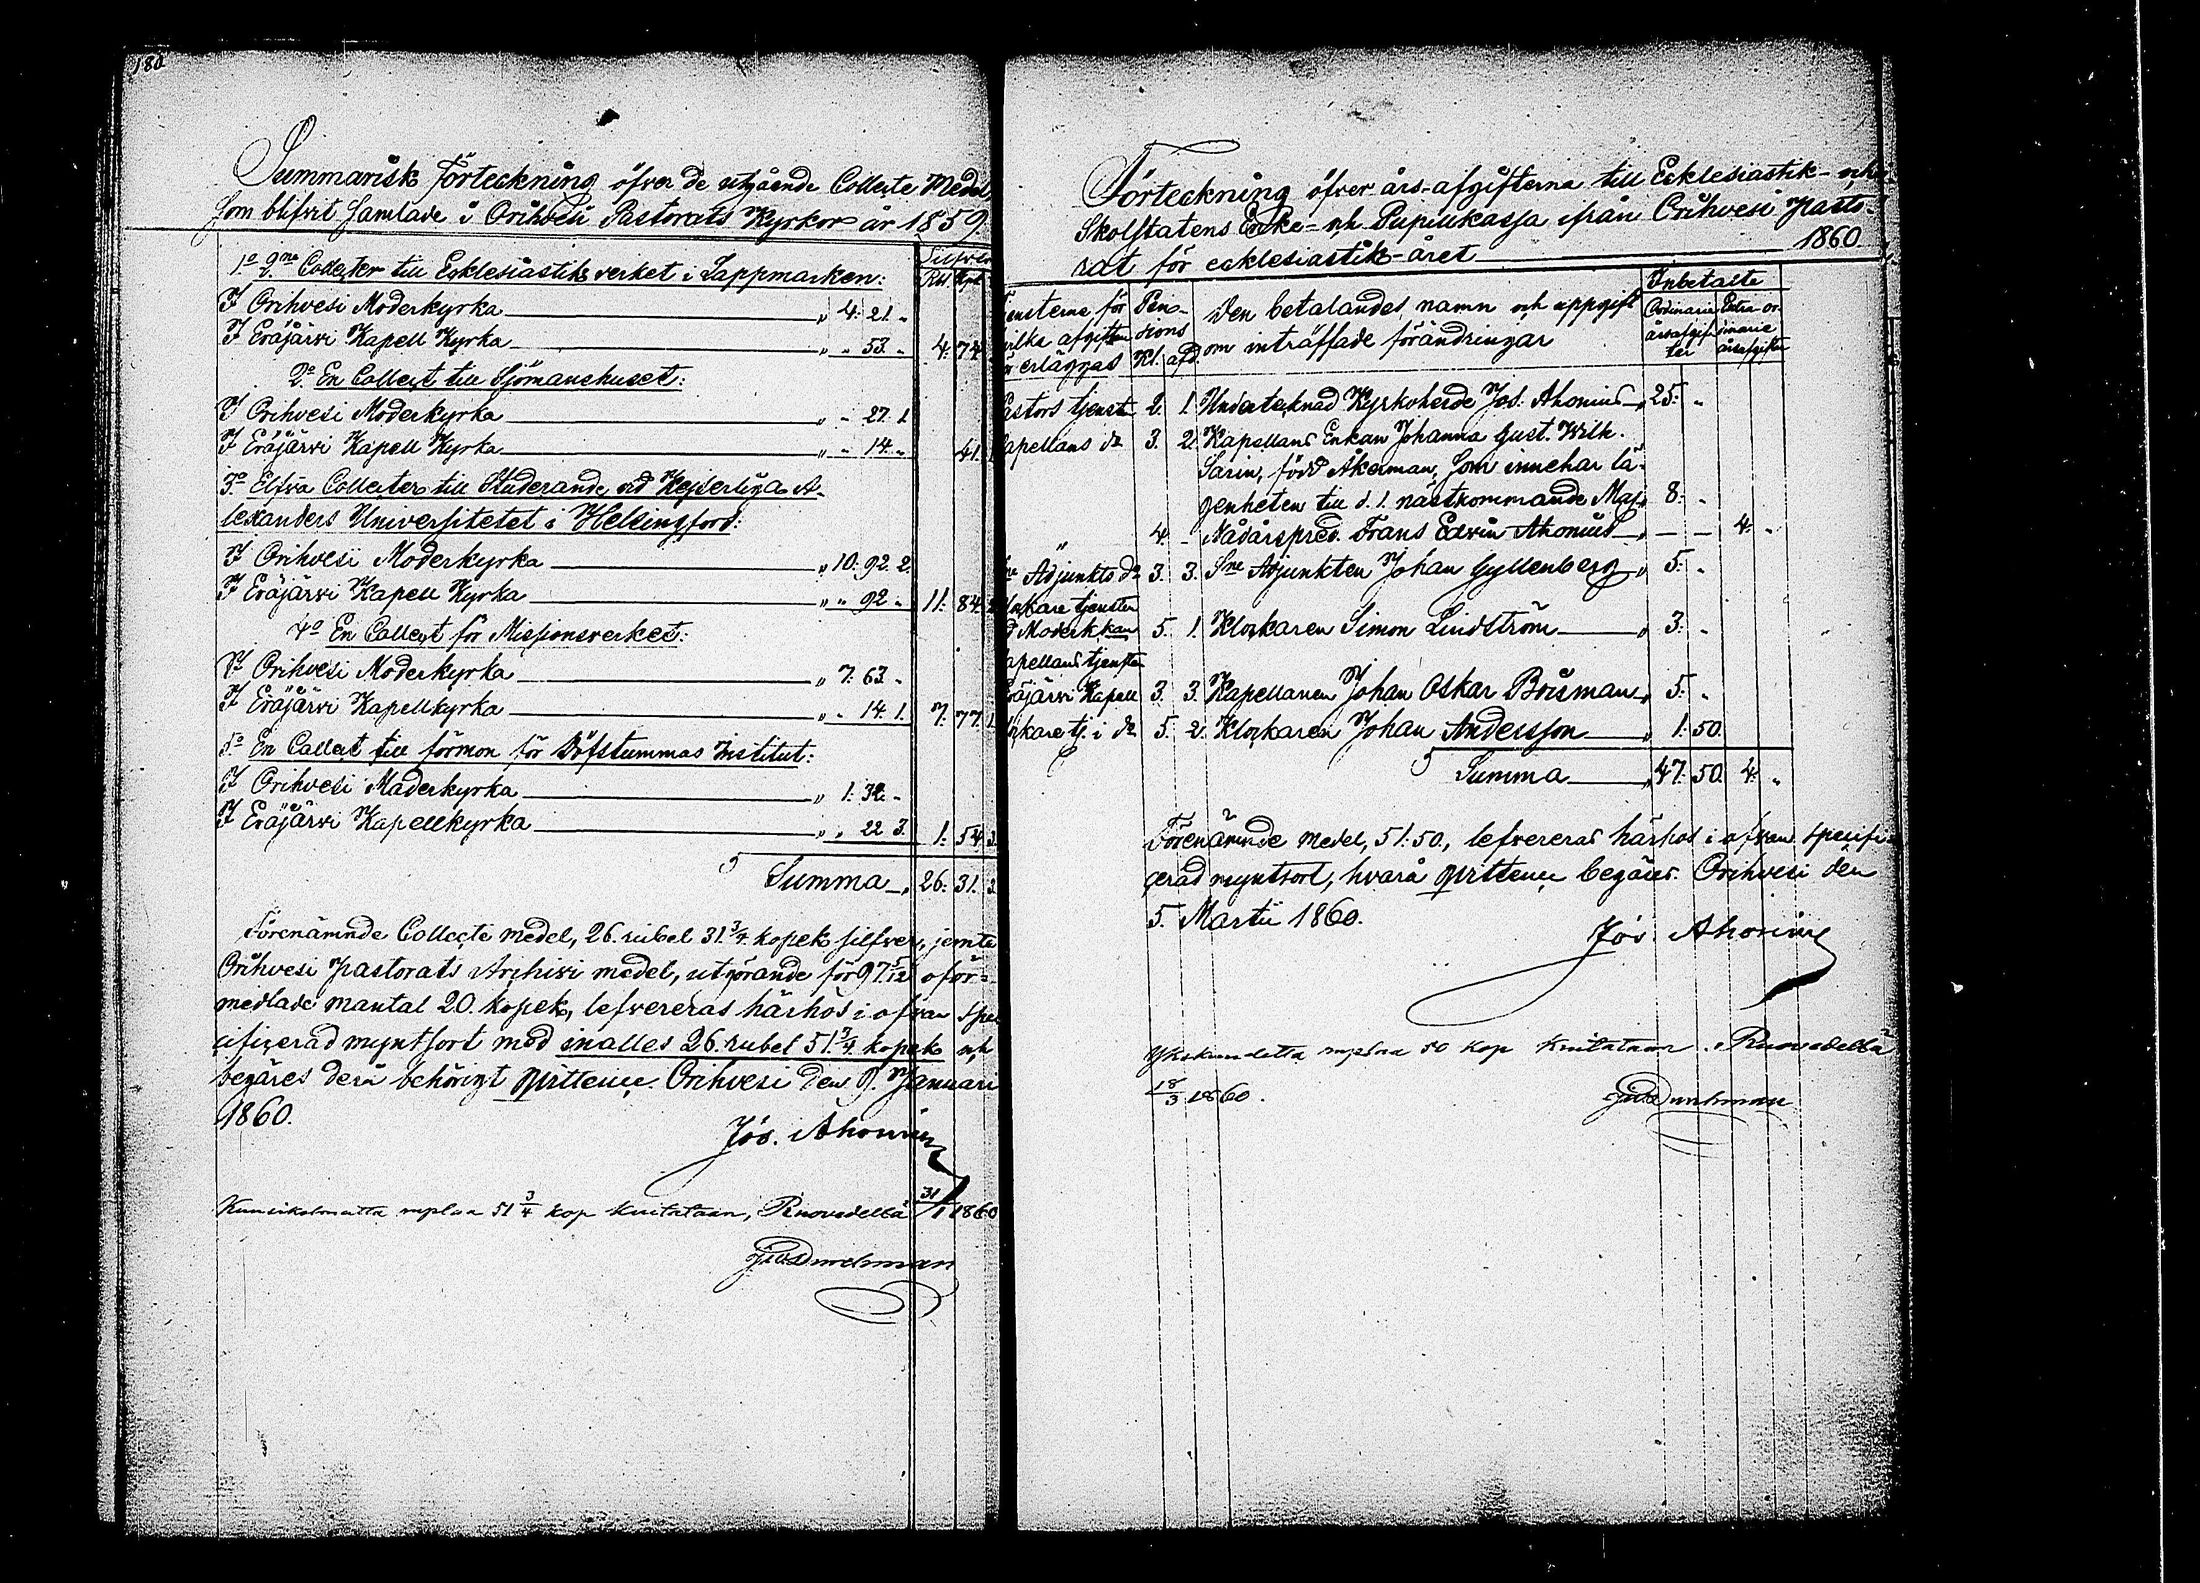 180
Summarisk Förteckning öfver de utgående Collecte Medel,
som blifvit samlade i Orihvesi Pastorats Kyrkor år 1859.
Silfver
Rbl. Kpk.
1o 2ne Collecter till Ecklesiastik verket i Lappmarken:
I Orihvesi Moderkyrka " 4. 21. "
I Eräjärvi Kapell Kyrka " " 53. " 4. 74.
2o En Collect till Sjömanshuset:
I Orihvesi Moderkyrka " - 27. 1.
I Eräjärvi Kapell Kyrka " - 14. " 41. 1
3o Elfva Collecter till Studerande vid Kejserliga A-
lexanders Universitetet i Helsingfors:
I Orihvesi Moderkyrka " 10. 92. 2.
I Eräjärvi Kapell Kyrka " " 92 " 11. 84.
4o En Collect för Missionsverket:
I Orihvesi Moderkyrka " 7. 63. "
I Eräjärvi Kapellkyrka " - 14. 1. 7. 77. 1
5o En Collect till förmon för Döfstummas Institut:
I Orihvesi Moderkyrka " 1. 32. "
I Eräjärvi Kapellkyrka " " 22 3. 1. 54. 3
Summa " 26. 31. 3
Förenämnde Collecte medel, 26. rubel 31. 3/4. kopek silfver, jemte
Orihvesi Pastorats Archivi medel, utgörande för 97 5/12 oför-
medlade mantal 20. kopek, lefvereras härhos i ofvan spe
cificerad myntsort med inalles 26. rubel 51. 3/4. kopek och
begäres derå behörigt qvittence. Orihvesi den 9. Januari
1860.
Jos. Ahonius
Kuusikolmatta ruplaa 51 3/4 kop kuitataan, Ruovedellä 31/1 1860
Förteckning öfver års-afgifterna till Ecklesiastik- och
Skolstatens Enke- och Pupillkassa ifrån Orihvesi Pasto-
rat för ecklesiastik-året 1860
Inbetalte
jensterne för Pen- Den betalandes namn och uppgift Ordinarie Extra or-
vilka afgiften sions om inträffade förändringar årsafgif- dinarie
erläggas Kl. afd. ter årsafgifter
Pastors tjenst 2. 1. Undertecknad Kyrkoherde Jos. Ahonius " 25. "
Capellans do 3. 2. Kapellans Enkan Johanna Gust. Wilh.
Sarin, född Åkerman, som innehar lä-
genheten till d. 1. nästkommande Maj " 8. "
" 4. - Nådårspred. Frans Edvin Ahonius " — — 4. "
Adjunkts do 3. 3. Sne Adjunkten Johan Gyllenberg " 5. "
lockare tjensten
d Moderk.kan 5. 1. Klockaren Simon Lindström " 3. "
apellans tjensten
Eräjärvi Kapell 3. 3. Kapellanen Johan Oskar Boisman " 5. "
lockare tj. i do 5. 2. Klockaren Johan Andersson " 1. 50.
Summa " 47. 50. 4. "
Förenämnde medel, 51. 50., lefvereras härhos i ofvan specifi-
cerad myntsort, hvarå qvittence begäres. Orihvesi den
5. Martii 1860.
Jos. Ahonius
ruplaa 50 kop kuitataan. Ruovedellä
18/3 1860.